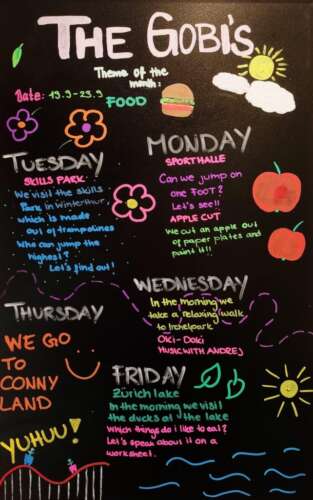 THE GOBI'S
Theme of the
month:
FOOD
Date: 19.9-23.9
MONDAY
SPORTHALLE
Can we jump on
one FOOT?
Let's see!!
APPLE CUT
We cut an apple out
of paper plates and
paint it!!
TUESDAY
SKILLS PARK
We visit the skills
Park in Winterthur,
which is made
out of trampolines
Who can jump the
highest?
Let's find out!
WEDNESDAY
In the morning we
take a relaxing walk
to Irchelpark
Oki-Doki
MUSIC WITH ANDREJ
THURSDAY
WE GO
TO
CONNY
LAND
YUHUU!
FRIDAY
Zürich lake
In the morning we visit
the ducks at the lake
Which things do i like to eat?
Let's speak about it on a
worksheet.